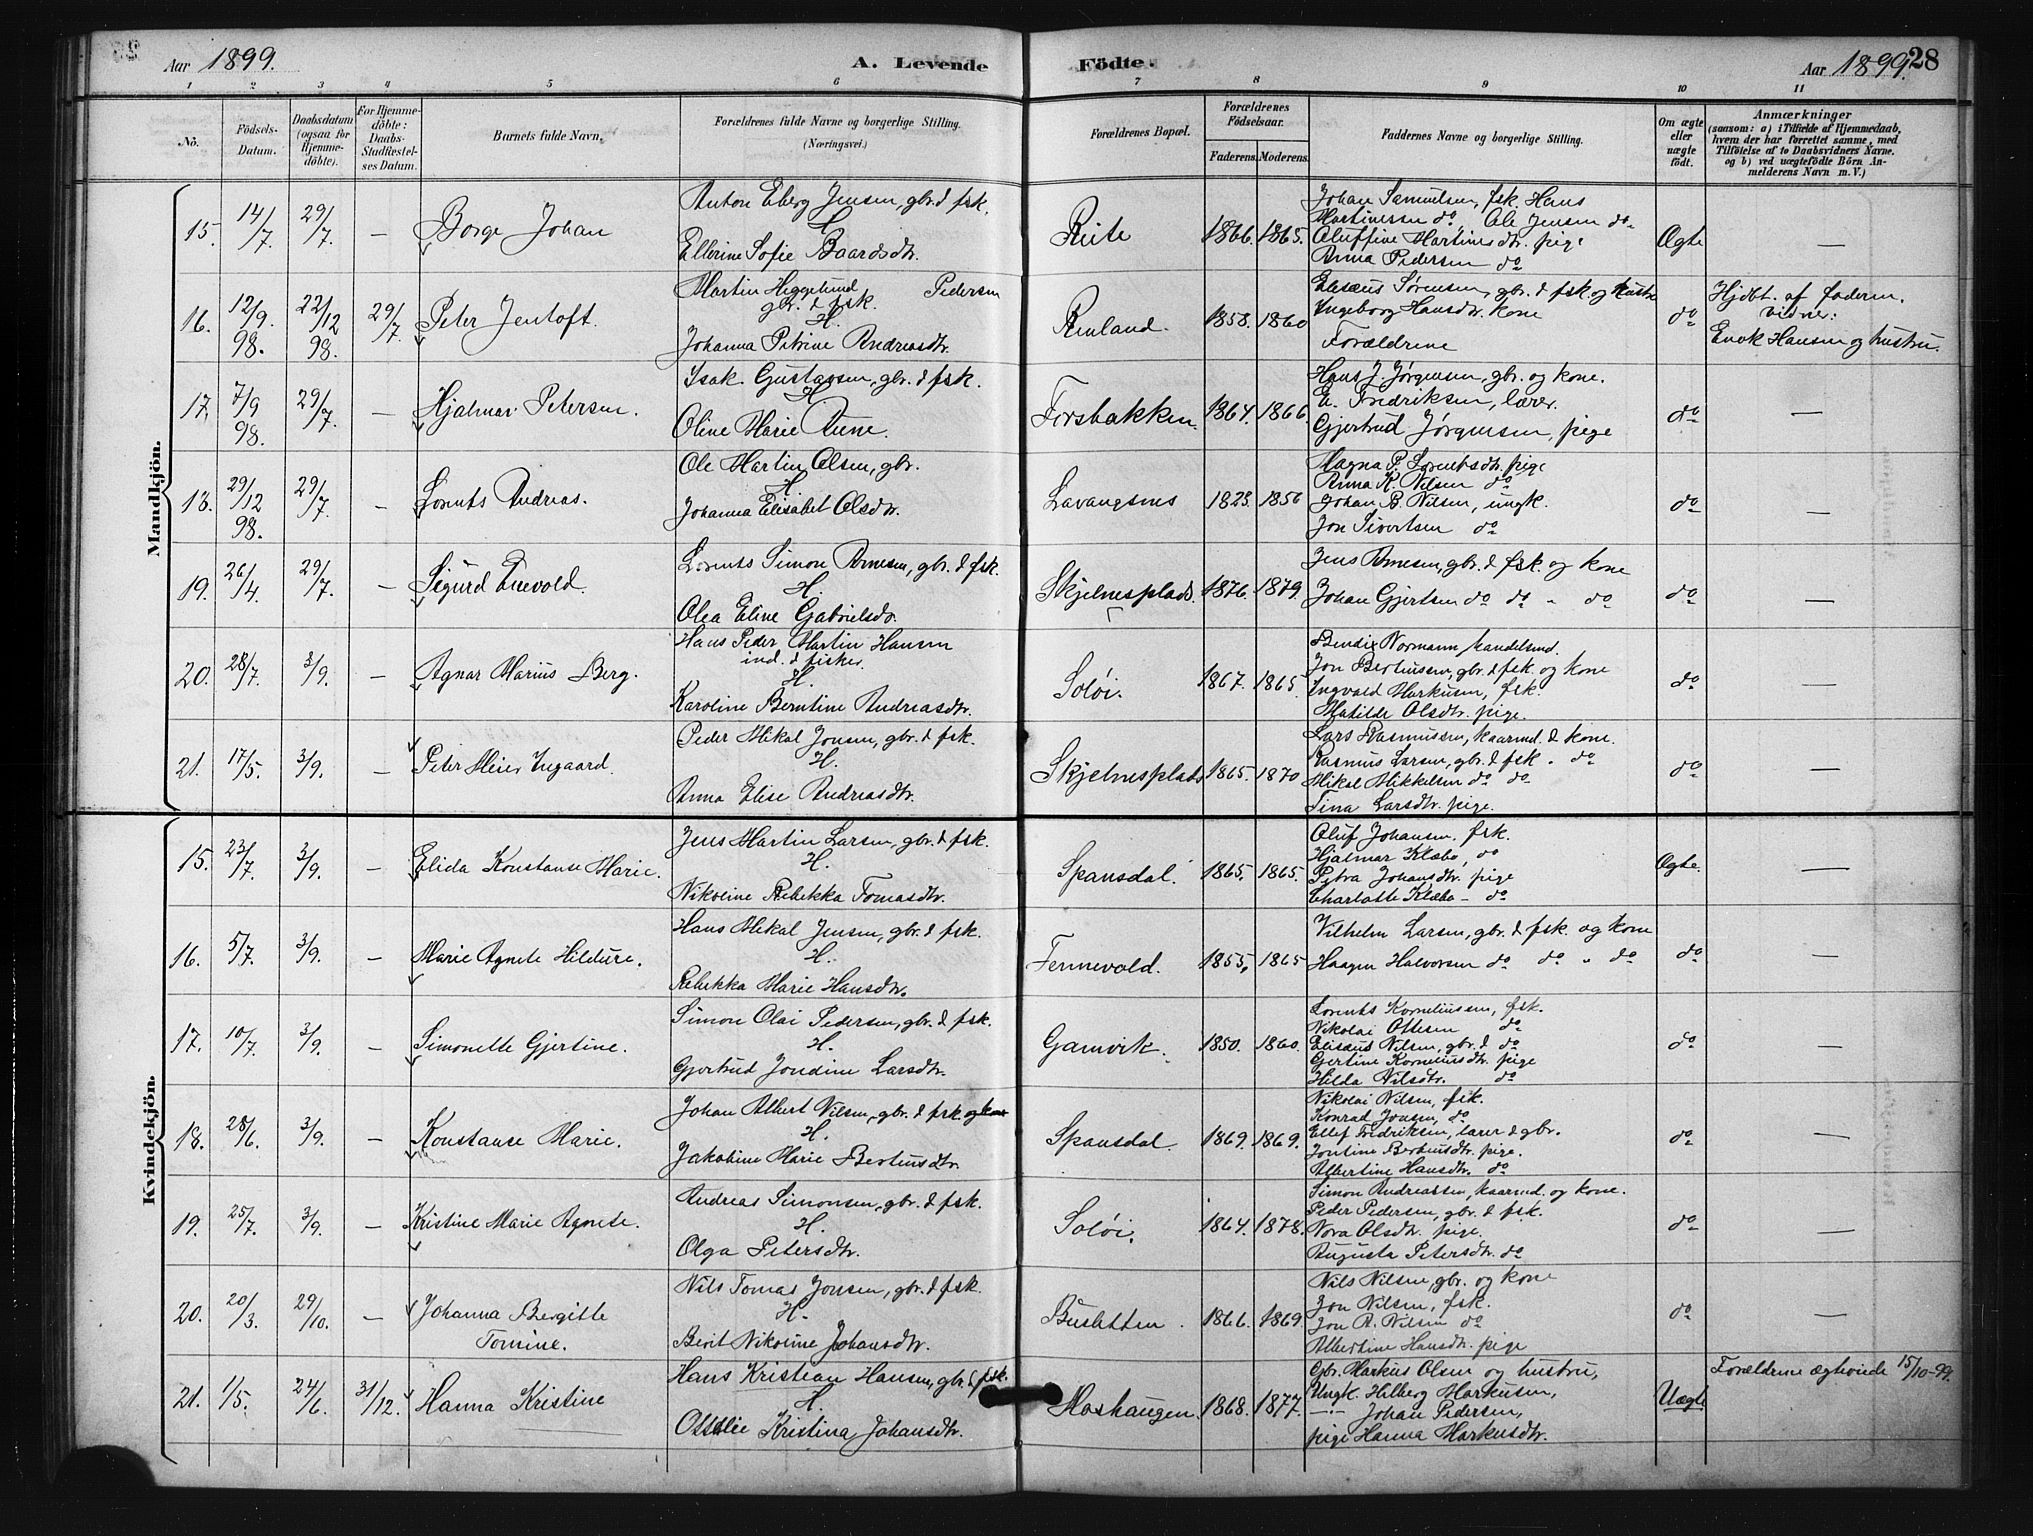 Aar 1899.
A. Levende Födte.
Aar 1899.
28
1 2 3 4 5 6 7 8 9 10 11
No.
Födsels-Datum.
Daabsdatum (ogsaa for Hjemme-döbte).
For Hjemme-döbte: Daabs-Stadfæstel-ses Datum.
Barnets fulde Navn.
Forældrenes fulde Navne og borgerlige Stilling.
(Næringsvei.)
Forældrenes Bopæl.
Forældrenes Födselsaar.
Faderens. Moderens.
Faddernes Navne og borgerlige Stilling.
Om ægte eller uægte födt.
Anmærkninger
(saasom: a) i Tilfælde af Hjemmedaab,
hvem der har forrettet samme, med
Tilföielse af to Daabsvidners Navne.
og b) ved uægtefödte Börn An-
melderens Navn m. V.)
Mandkjön.
15. 14/7. 29/7. — Borge Johan
Anton Eberg Jensen, gbr. & fsk.
H
Ellerine Sofie Baardsdtr.
1866. 1865.
Johan Samuelsen, fsk. Hans
Martinersen do, Ole Jensen do
Oluffine Martinsdtr. pige
Anna Pedersen do
Ægte —
16. 12/9. 98. 22/12 98. 29/7. Peter Jentoft.
Martin Heggelund Pedersen
gbr. & fsk.
H.
Johanna Petrine Andreasdtr.
Renland. 1858. 1860
Elisæus Sørensen, gbr. & fsk og hustru
Ingeborg Hansdtr. kone
Forældrene
do
Hjdbt. af faderen.
vidner:
Enok Hansen og hustru.
17. 7/9 98. 29/7. — Hjalmar Petersen.
Isak Gustavsen, gbr. & fsk.
H
Oline Marie Aune.
Forsbakken. 1864. 1866.
Hans J. Jørgensen, gbr. og kone.
E. Fredriksen, lærer.
Gjertrud Jørgensen, pige
do —
18. 29/12 98. 29/7. — Lorents Andreas.
Ole Martin Olsen, gbr.
H
Johanna Elisabet Olsdtr.
Lavangsnes 1823. 1856
Magna P. Lorentsdtr. pige
Anna K. Nilsen do
Johan B. Nilsen, ungk.
Jon Sivertsen do
do —
19. 26/4. 29/7. — Sigurd Enevold.
Lorents Simon Arnesen, gbr. & fsk.
H.
Olea Eline Gabrielsdtr.
Skjelnesplads. 1876. 1879.
Jens Arnesen, gbr. & fsk. og kone
Johan Gjertsen do do " do
do —
20. 28/7. 3/9. — Agnar Marius Berg.
Hans Peder Martin Hansen
ind. & fisker.
H.
Karoline Berntine Andreasdtr.
Soløi. 1867. 1865.
Bendix Normann handelsmd.
Jon Bertiussen, gbr. & fsk. og kone
Ingvald Markusen, fsk.
Matilde Olsdtr. pige.
do —
21. 17/5. 3/9. — Peter Meier Ingaard.
Peder Mikal Jonsen, gbr. & fsk.
H.
Anna Elise Andreasdtr.
Skjelnesplads 1865. 1870
Lars Rasmussen, kaarmd. & kone.
Rasmus Larsen, gbr. & fsk. " do
Mikal Mikkelsen do do
Tina Larsdtr. pige.
do —
Kvindekjön.
15. 23/7. 3/9. — Elida Konstanse Marie.
Jens Martin Larsen, gbr. & fsk.
H.
Nikoline Rebekka Tomasdtr.
Spansdal. 1865. 1865.
Oluf Johansen, fsk.
Hjalmar Klæbo, do
Petra Johansdtr. pige
Charlotte Klæbo — do
Ægte. —
16. 5/7. 3/9. — Marie Agnete Hildure.
Hans Mikal Jensen, gbr. & fsk.
H.
Rebekka Marie Hansdtr.
Fennevold. 1855. 1865
Vilhelm Larsen, gbr. & fsk. og kone
Haagen Halvorsen do do " do
do —
17. 10/7. 3/9. — Simonette Gjertine.
Simon Olai Pedersen, gbr. & fsk.
H.
Gjertrud Jondine Larsdtr.
Gamvik. 1850. 1860.
Lorents Korneliussen, fsk.
Nikolai Ottesen do
Elisæus Nilsen, gbr. & do
Gjertine Korneliusdtr. pige
Hilda Nilsdtr. do
do —
18. 28/6. 3/9. — Konstanse Marie.
Johan Albert Nilsen, gbr. & fsk. og kone
H.
Jakobine Marie Bertiusdtr.
Spansdal. 1869. 1869.
Nikolai Nilsen, fsk.
Konrad Jonsen, do
Ellef Fredriksen, lærer & gbr.
Jontine Bertiusdtr. pige.
Albertine Hansdtr. do
do —
19. 25/7. 3/9. — Kristine Marie Agnete.
Andreas Simonsen, gbr. & fsk.
H.
Olga Petersdtr.
Soløi. 1864. 1878.
Simon Andreassen, kaarmd. og kone.
Peder Pedersen, gbr. & fsk.
Nora Olsdtr. pige.
Augusta Petersdtr. do
do —
20. 20/3. 29/10. — Johanna Bergitte
Tomine.
Nils Tomas Jonsen, gbr. & fsk.
H.
Berit Nikoline Johansdtr.
Busletten. 1866. 1869.
Nils Nilsen, gbr. og kone
Jon Nilsen, fsk.
Jon R. Nilsen do
Albertine Hansdtr. pige
do —
21. 1/5. 24/6. 31/12. Hanna Kristine
Hans Kristian Hansen, gbr. & fsk.
H.
Ottilie Kristina Johansdtr.
Moshaugen. 1868. 1877.
Gbr. Markus Olsen og hustru,
Ungk. Hilberg Markusen,
—"— Johan Pedersen,
pige Hanna Markusdtr.
Uægte
Forældrene ægteviede 15/10-99.